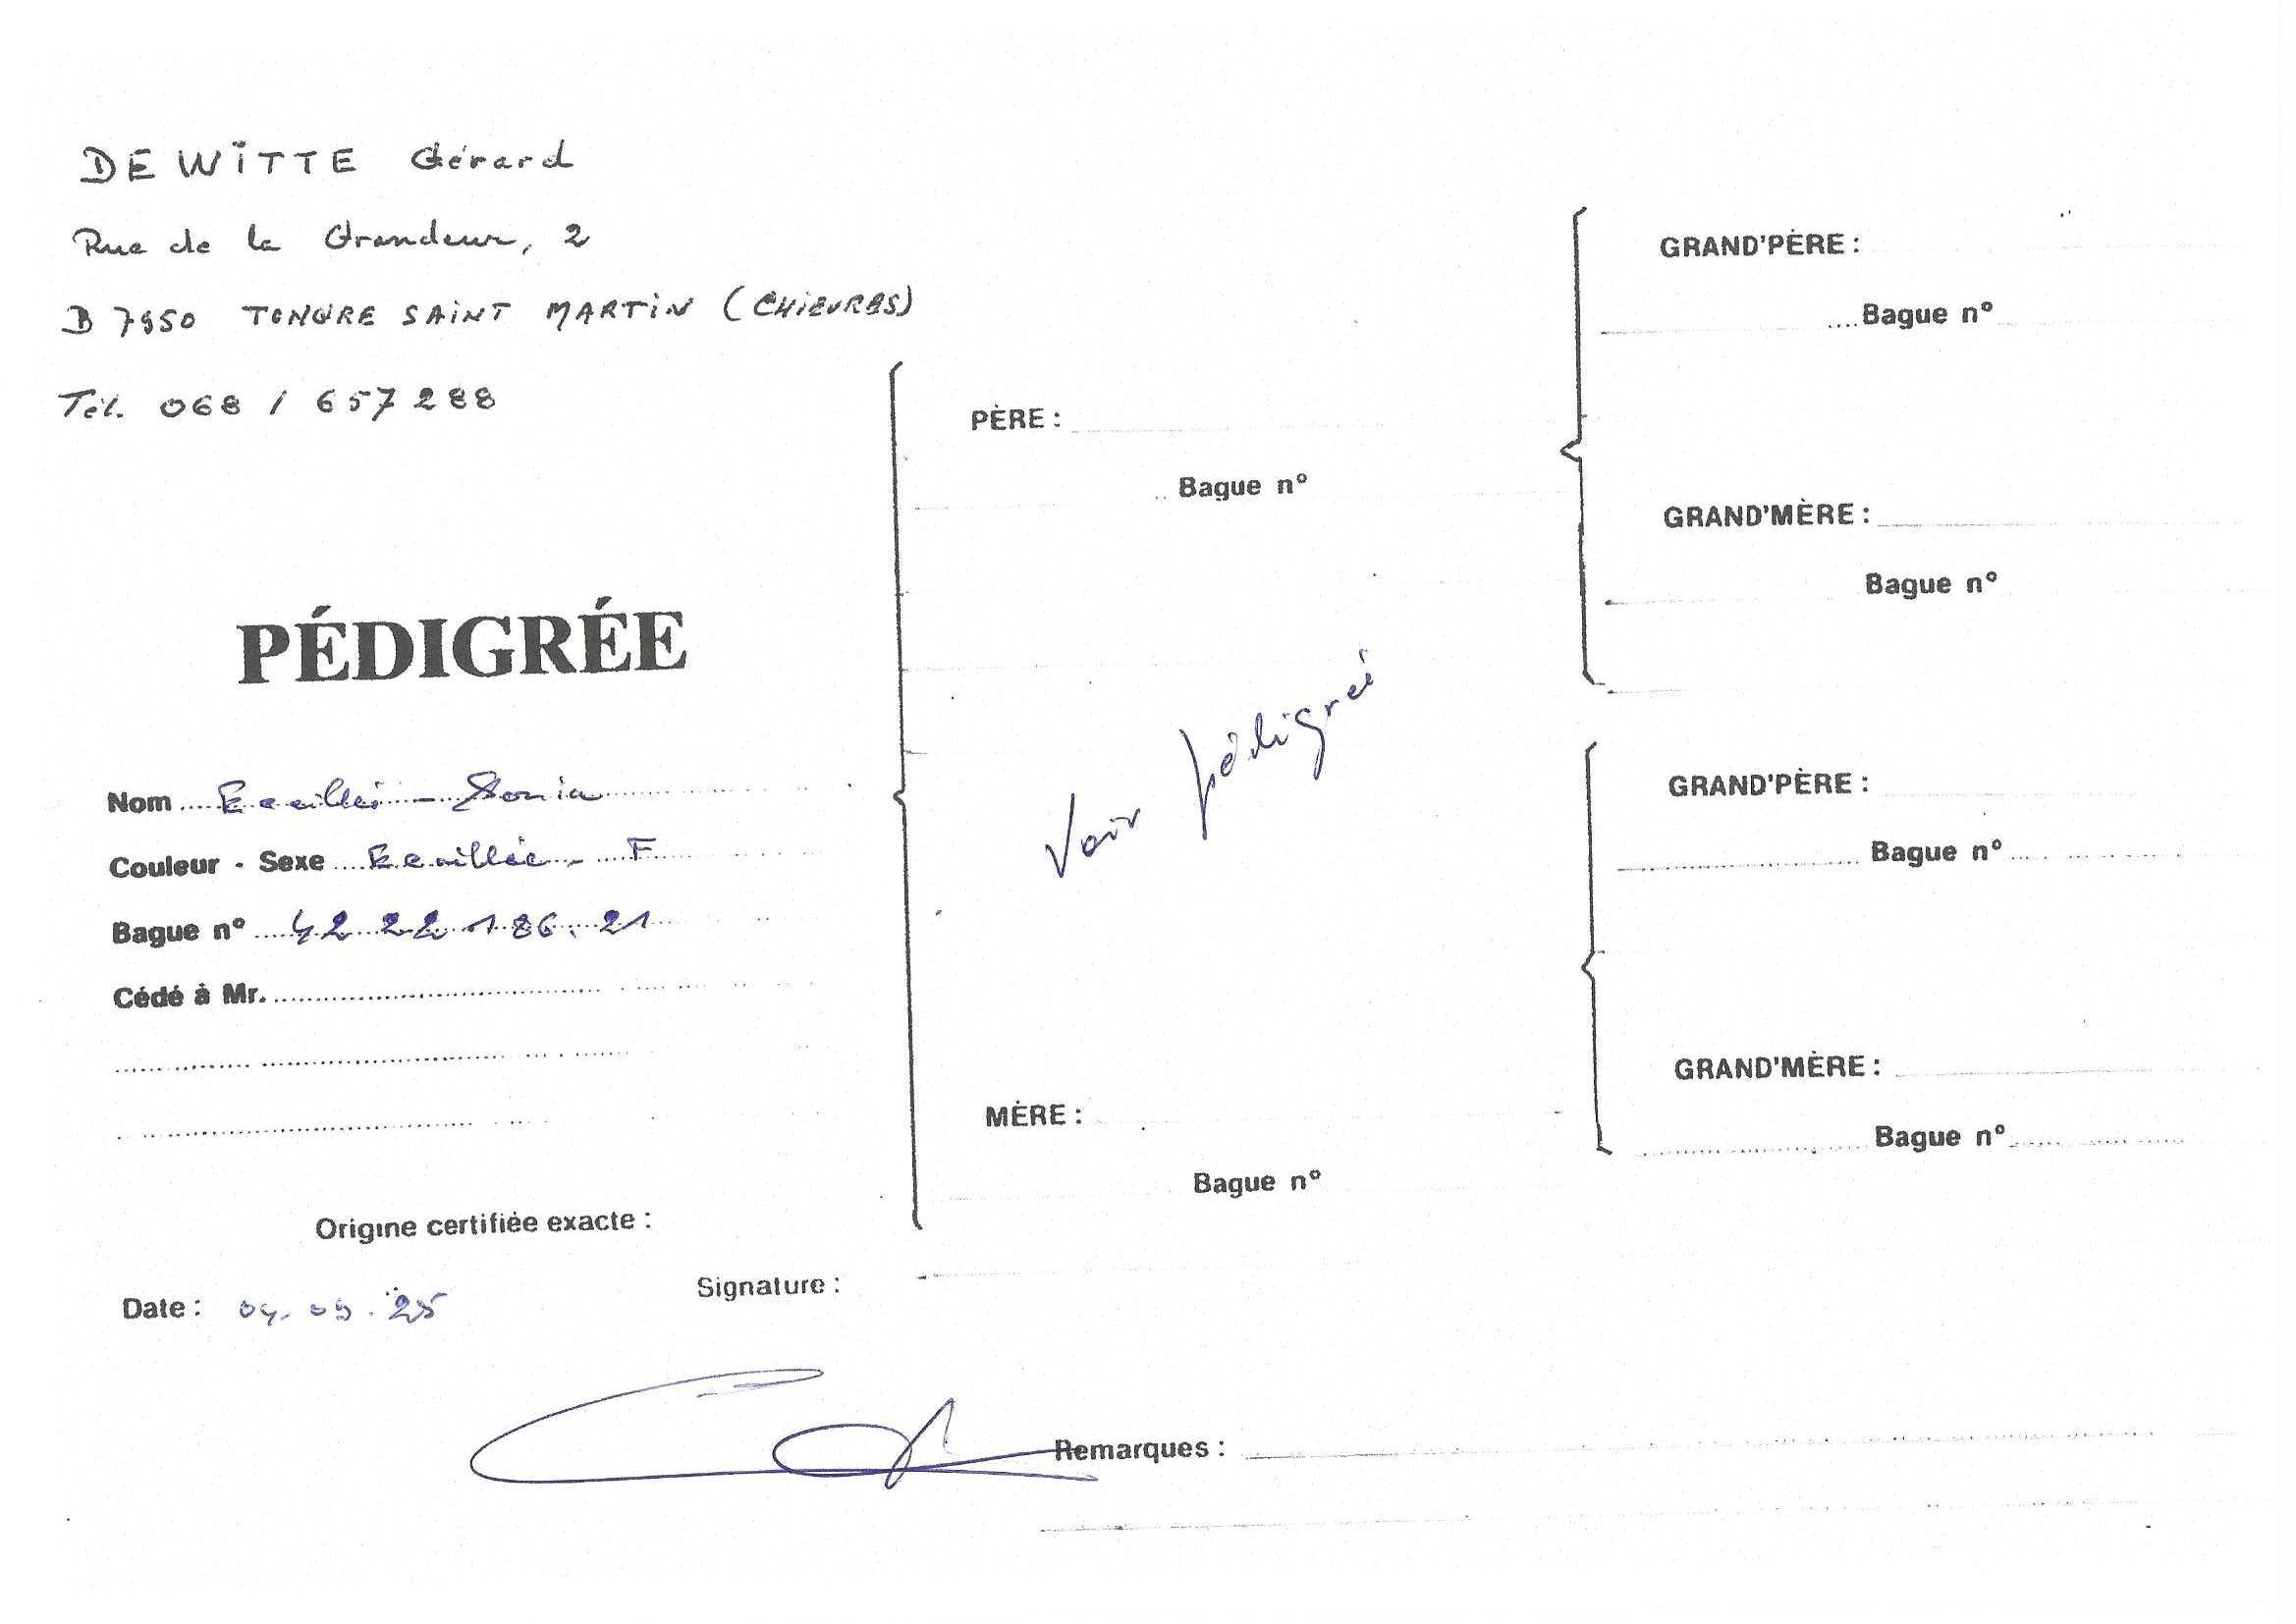 DEWITTE Gérard
Rue de la Grandeur, 2
B 7950 TONGRE SAINT MARTIN (CHIEVRES)
Tél. 068 / 657288
PÉDIGRÉE
Nom Ecaillé - Sonia
Couleur - Sexe Ecaillée - F
Bague n° 42 22 186. 21
Cédé à Mr.
Origine certifiée exacte :
Date : 04. 09. 25
Signature :
PÈRE :
Bague n°
Voir pédigréé
MÈRE :
Bague n°
GRAND'PÈRE :
Bague n°
GRAND'MÈRE :
Bague n°
GRAND'PÈRE :
Bague n°
GRAND'MÈRE :
Bague n°
Remarques :